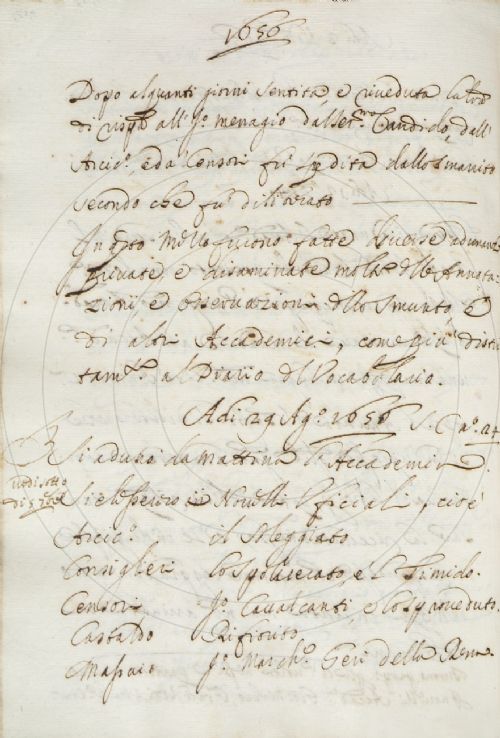 1656
Dopo alquanti giorni sentita, e riveduta la lrã
di rispta all' Sr. Menagio dal Ser.mo Candido, dall'
Arcic.o, e da Censori fu spedita dallo Smarrito
secondo che fu diliberato
In questo Mese furono fatte diverse adunanze
Private, e riesaminate molte delle Annota=
zioni e observazioni dello Smunto, e
di altri Accademici, come più distin
tam.te al Diario del Vocabolario.
Adi 29 Ag.o 1656
Si adunò da mattina l'Accademia
Vedi sotto
si elessero i Novelli Ufficiali, cioè
Arcic.o il
Consiglieri lo Spolverato, e 'l Timido.
Censori Sr. Cavalcanti e lo Sprovveduto.
Castaldo Rifiorito
Massaio Sr. March.e Geri della Rena.